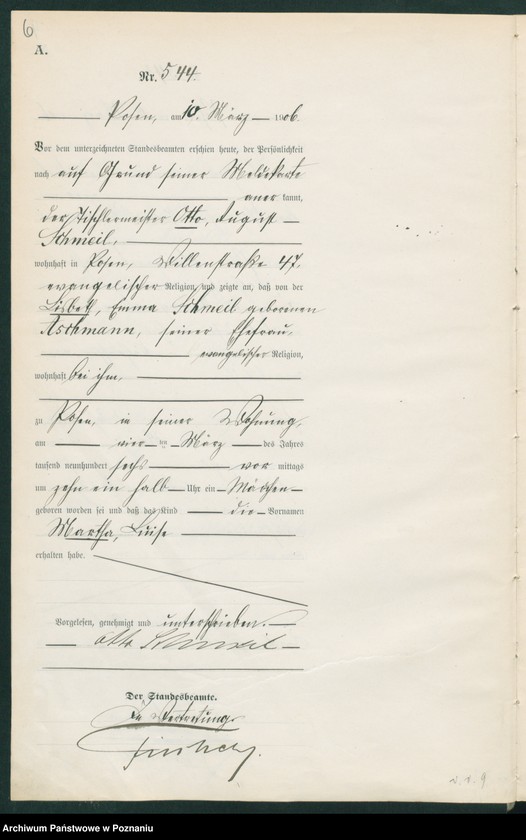 6
A.
Nr. 544.
Posen, am 10. März 1906.
Vor dem unterzeichneten Standesbeamten erschien heute, der Persönlichkeit
nach auf Grund seiner Meldekarte
aner kannt,
der Tischlermeister Otto, August
Schmeil,
wohnhaft in Posen, 47,
evangelischer Religion, und zeigte an, daß von der
Lisbeth, Emma Schmeil geborenen
Aschmann, seiner Ehefrau,
evangelischer Religion,
wohnhaft bei ihm,
zu Posen, in seiner Wohnung,
am vier ten März des Jahres
tausend neunhundert sechs vor mittags
um zehn ein halb Uhr ein Mädchen
geboren worden sei und daß das Kind die Vornamen
Martha, Luise
erhalten habe.
Vorgelesen, genehmigt und unterschrieben.
Otto Schmeil
Der Standesbeamte.
In Vertretung.
Archiwum Państwowe w Poznaniu